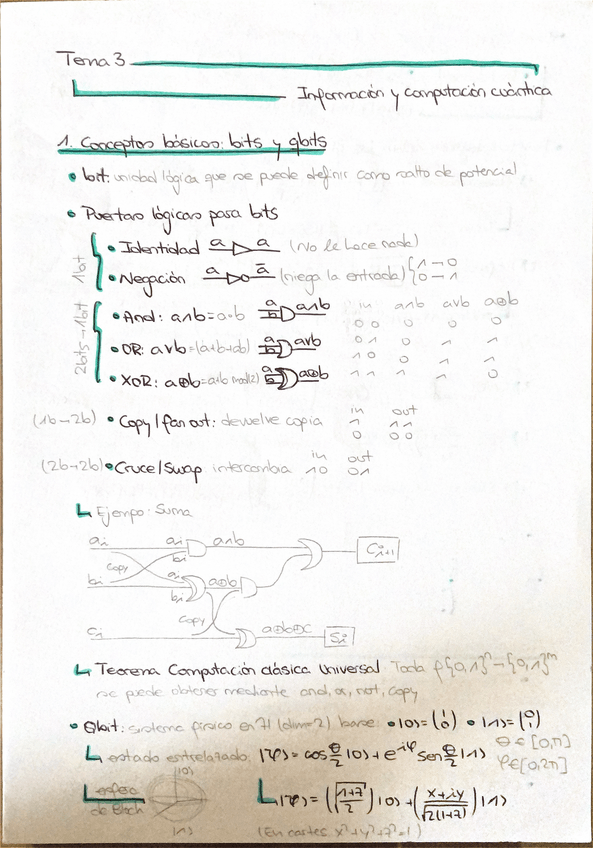 Tema 3
Información y computación cuántica
1. Conceptos básicos: bits y qbits
• bit: unidad lógica que se puede definir como salto de potencial
• Puertas lógicas para bits
1bit
• Identidad a a (no le hace nada)
• Negación a ā (niega la entrada) { 1→0
0→1
2bits→1bit
• And: a∧b=a·b a b a∧b in a∧b a∨b a⊕b
0 0 0 0 0
• OR: a∨b=(a+b+ab) a b a∨b 0 1 0 1 1
1 0 0 1 1
• XOR: a⊕b=a+b mod(2) a b a⊕b 1 1 1 1 0
(1b→2b) • Copy/fan out: devuelve copia in out
1 11
0 00
(2b→2b) • Cruce/Swap intercambia in out
10 01
Ejempo: Suma
ai ai a∧b Ci+1
bi
copy ai
bi bi a⊕b
Copy
ci a⊕b⊕c Si
Teorema Computación clásica Universal Toda f{0,1}ⁿ→{0,1}ᵐ
se puede obtener mediante and, or, not, copy
• Qbit: sistema físico en H (dim=2) base •|0>=(1 0) •|1>=(0 1)
estado entrelazado: |Ψ>=cos θ/2 |0>+e^-iφ Sen θ/2 |1> θ∈[0,π]
φ∈[0,2π]
esfera de Bloch |0> |1>
|Ψ>=(√(1+z)/2)|0>+((x+iy)/√2(1+z))|1>
(En cartes x²+y²+z²=1)